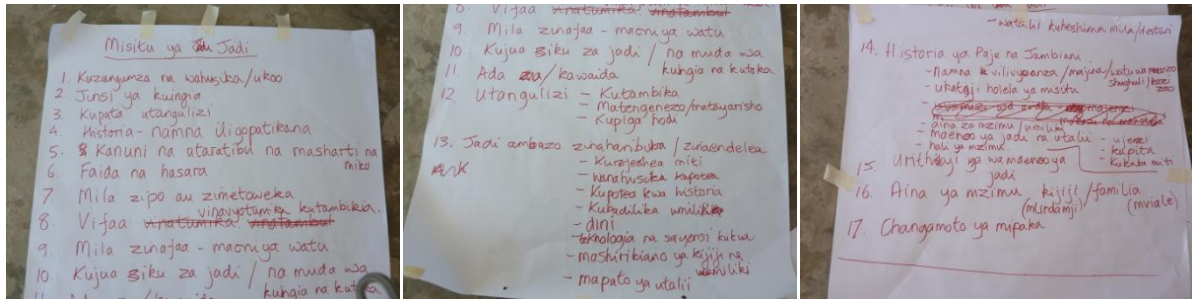 Misitu ya Jadi
1. Kuzungumza na wahusika/ukoo
2. Jinsi ya kuingia
3. Kupata utangulizi
4. Historia - namna iligopatikana
5. Kanuni na ataratibu na masharti na miko
6. Faida na hasara
7. Mila zipo au zimetoweka
vinavyotumika kutambikia.
8. Vifaa vinatumika vinatambul
9. Mila zunafaa - maoni ya watu
10. Kujua siku za jadi / na muda wa
kuhgia na kutoka
8. Vifaa vinatumika vinatambul
9. Mila zunafaa - maoni ya watu
10. Kujua siku za jadi / na muda wa
kuhgia na kutoka
11. Ada / kawaida
12. Utangulizi - Kutambika
- Matengenezo/matayarisho
- Kupiga hodi
13. Jadi ambazo zinaharibika / zinaendelea
- Kurejeshea miti
- wanahusika kupotea
- Kupotea kwa historia
- Kubadilika umiliki
- dini
- teknologia na sayansi kukua
- mashirikiano ya kijiji na
umiliki
- mapato ya utalii
- watalii kuheshimu mila/desturi
14. Historia ya Paje na Jambiani
- Namna vilivyoanza/majina/watu wa
shughuli/
- ukataji holela ya misitu
- aina za mzimu / umiliki
- maeneo ya jadi na utalii
- hali ya mzimu
- ujenzi
- kapita
- kukata miti
15. Urithiaji ya wa maeneo ya
jadi
16. Aina ya mzimu kijiji / familia
(mviale)
17. Changamoto ya mipaka